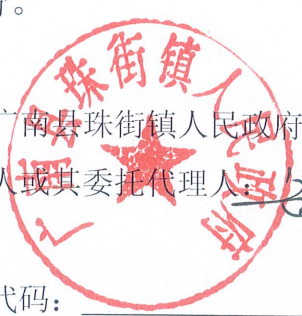 。
广南县珠街镇人民政府
人或其委托代理人：
代码：
广南县珠街镇人民政府